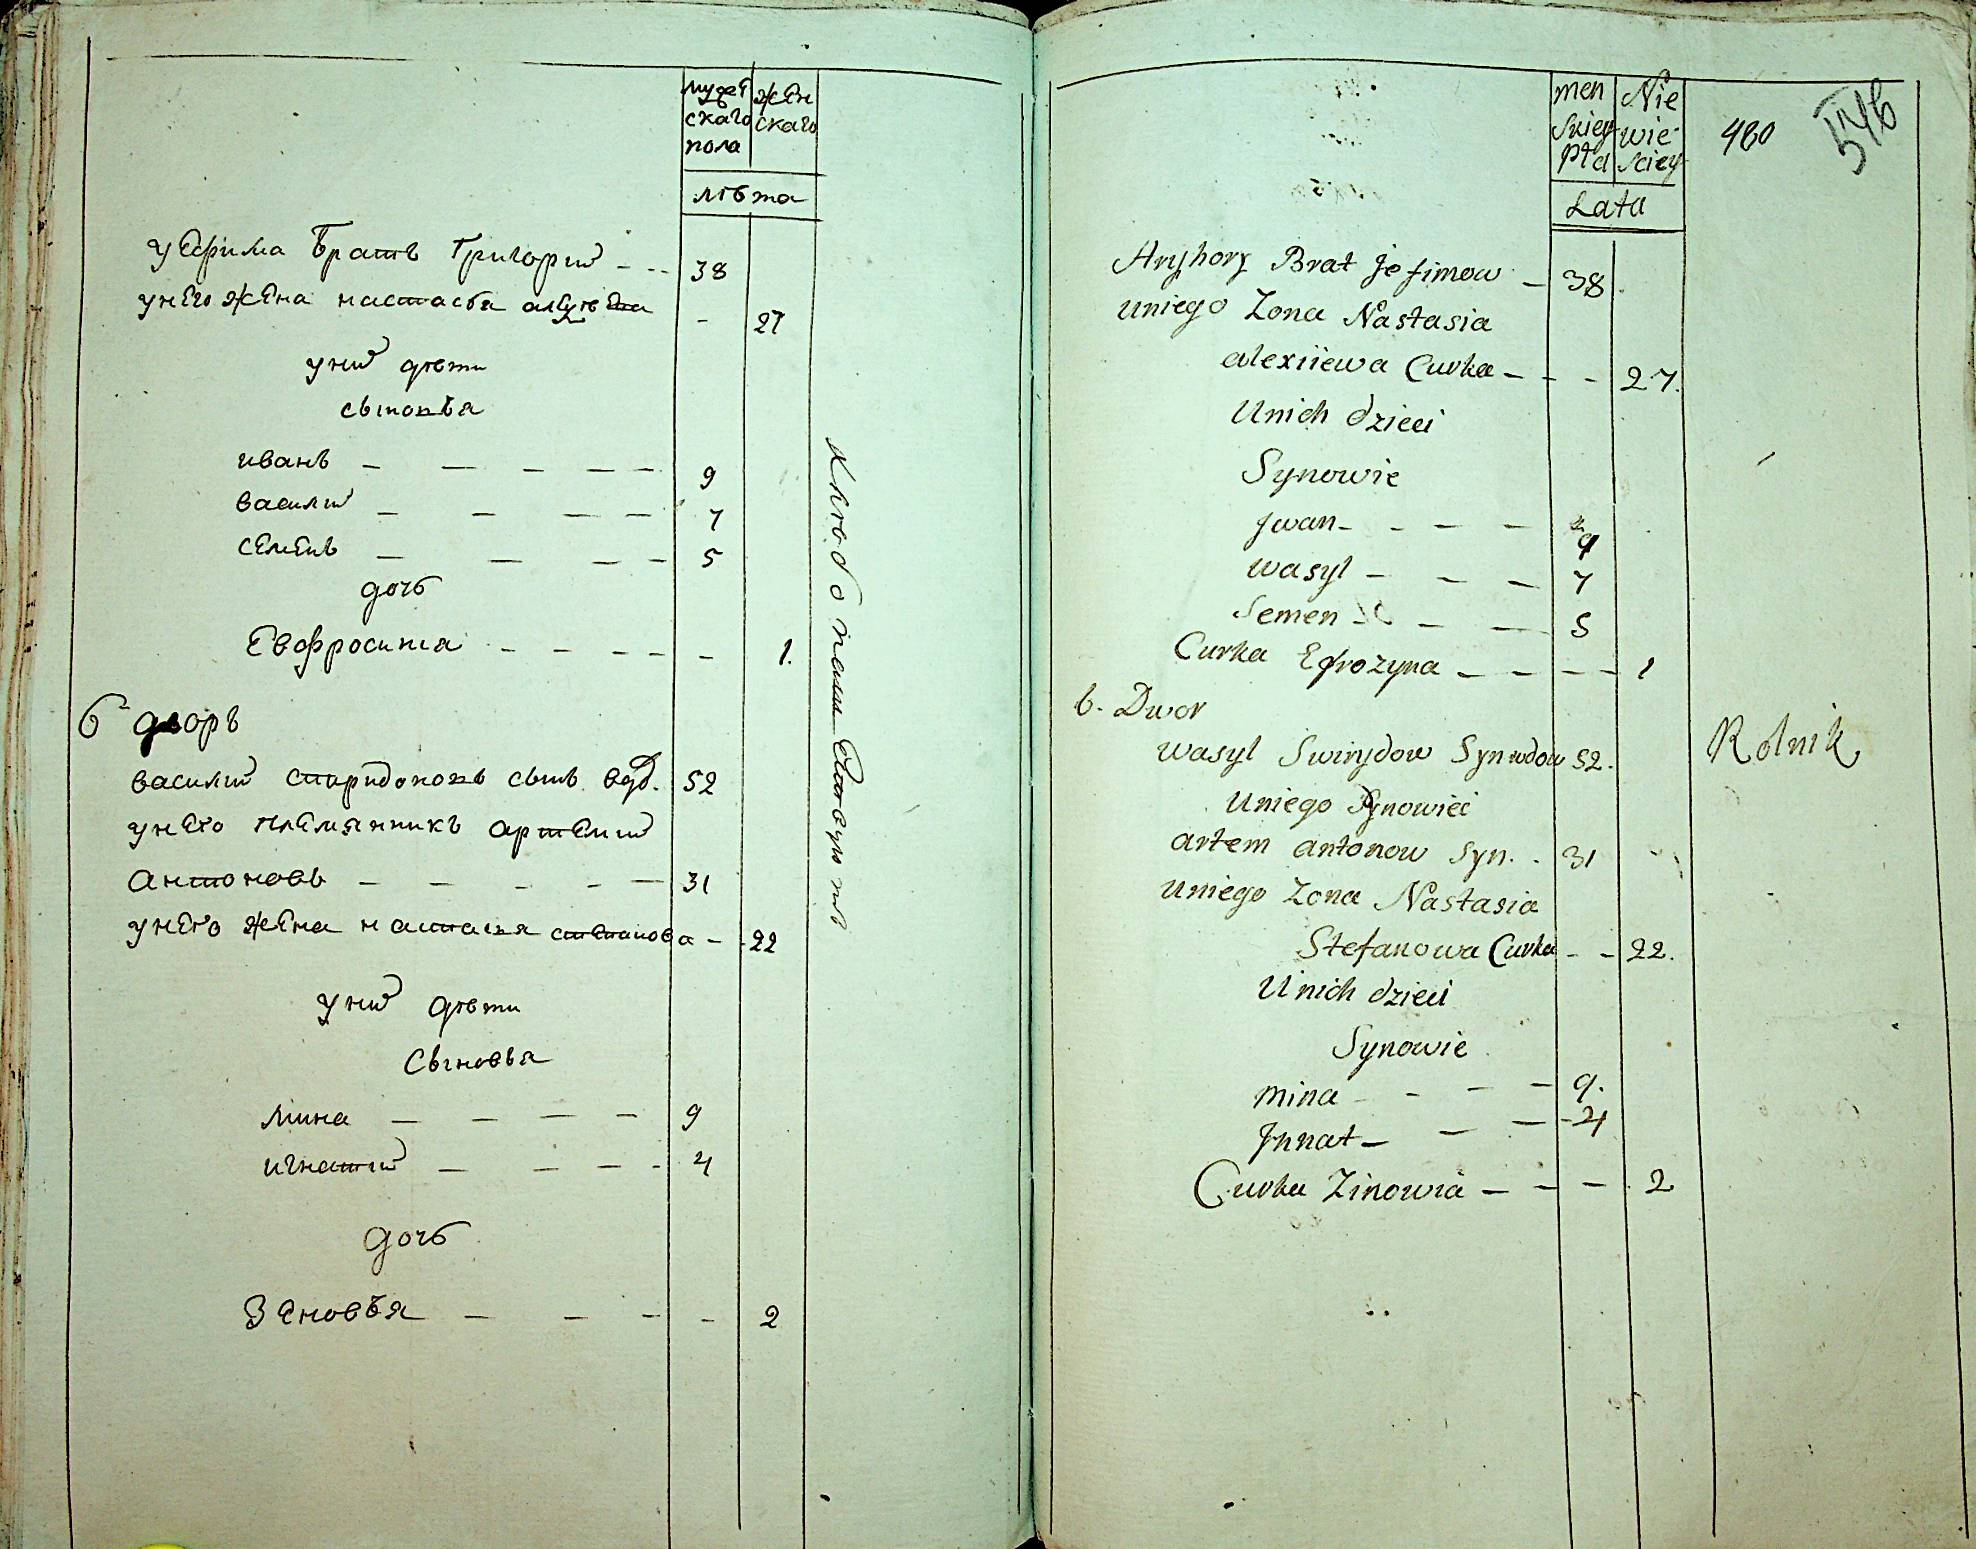 мужес женс
скаго скаго
пола
лѣта
У Ефима братъ Григорий - - - 38
у него жена настасья алексеева - 27
у них дѣти
сыновья
иванъ - - - - - 9
василий - - - - 7
семенъ - - - - 5
дочь
Евфросиния - - - - - 1.
6 дворъ
василий спиридоновъ сынъ вдов. 52
у него племянникъ артемий
антоновъ - - - - - 31
у него жена насталья степанова - - 22
у них дѣти
Сыновья
мина - - - - 9
игнатий - - - - 4
дочь
Зеновья - - - - 2
хлѣбопашествуютъ
men Nie
skiey wie-
Płci sciey
Lata
480
546
Aryhory Brat Jefimow - 38
uniego Zona Nastasia
alexiiewa Curka - - - 27.
Unich dzieci
Synowie
Jwan - - - - 9
wasyl - - - 7
Semen - - 5
Curka Efrozyna - - - - 1
6. Dwor
wasyl Swirydow Syn wdow 52.
Rolnik
Uniego Synowiec
artem antonow Syn. - 31
Uniego Zona Nastasia
Stefanowa Curka - - 22.
Unich dzieci
Synowie
mina - - - - 9.
Jhnat - - - 4
Curka Zinowia - - - 2